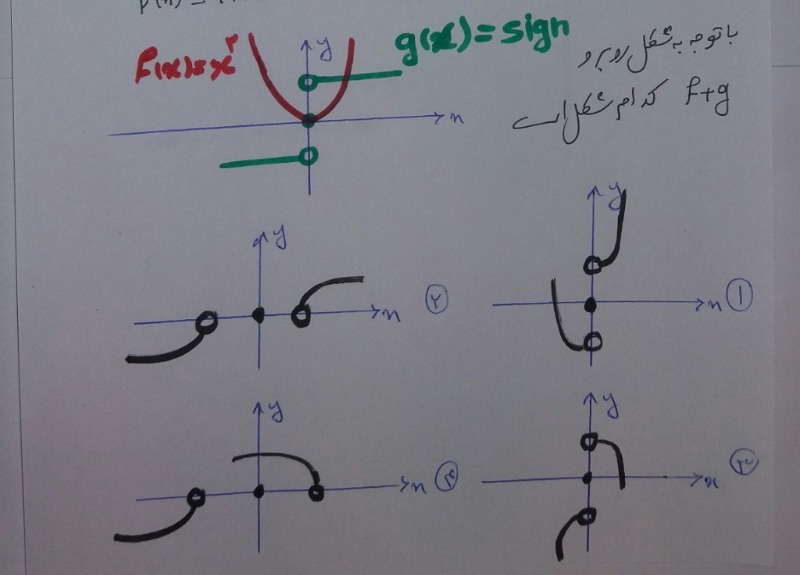 F(x)=x²
y
g(x)=sign
x
با توجه به شکل روبرو
f+g کدام شکل است
y
x
①
y
x
②
y
x
③
y
x
④